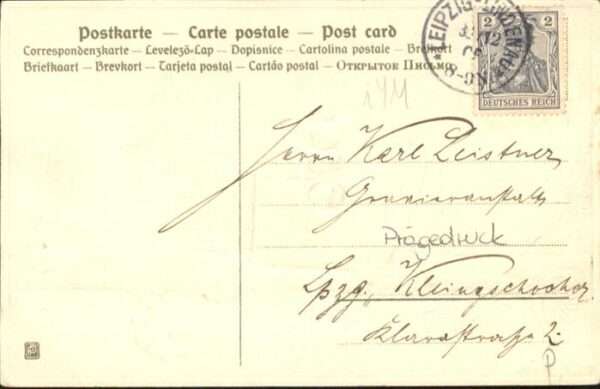 Postkarte — Carte postale — Post card
Correspondenzkarte — Levelező-Lap — Dopisnice — Cartolina postale — Brefkort
Briefkaart — Brevkort — Tarjeta postal — Cartão postal — Открытое Письмо
LEIPZIG-LINDENAU
8-9N
2 2
DEUTSCHES REICH
Herrn Karl Leistner
Gravieranstalt
Prägedruck
Lpzg. Kleinzschocher
Klarastraße 2.
P